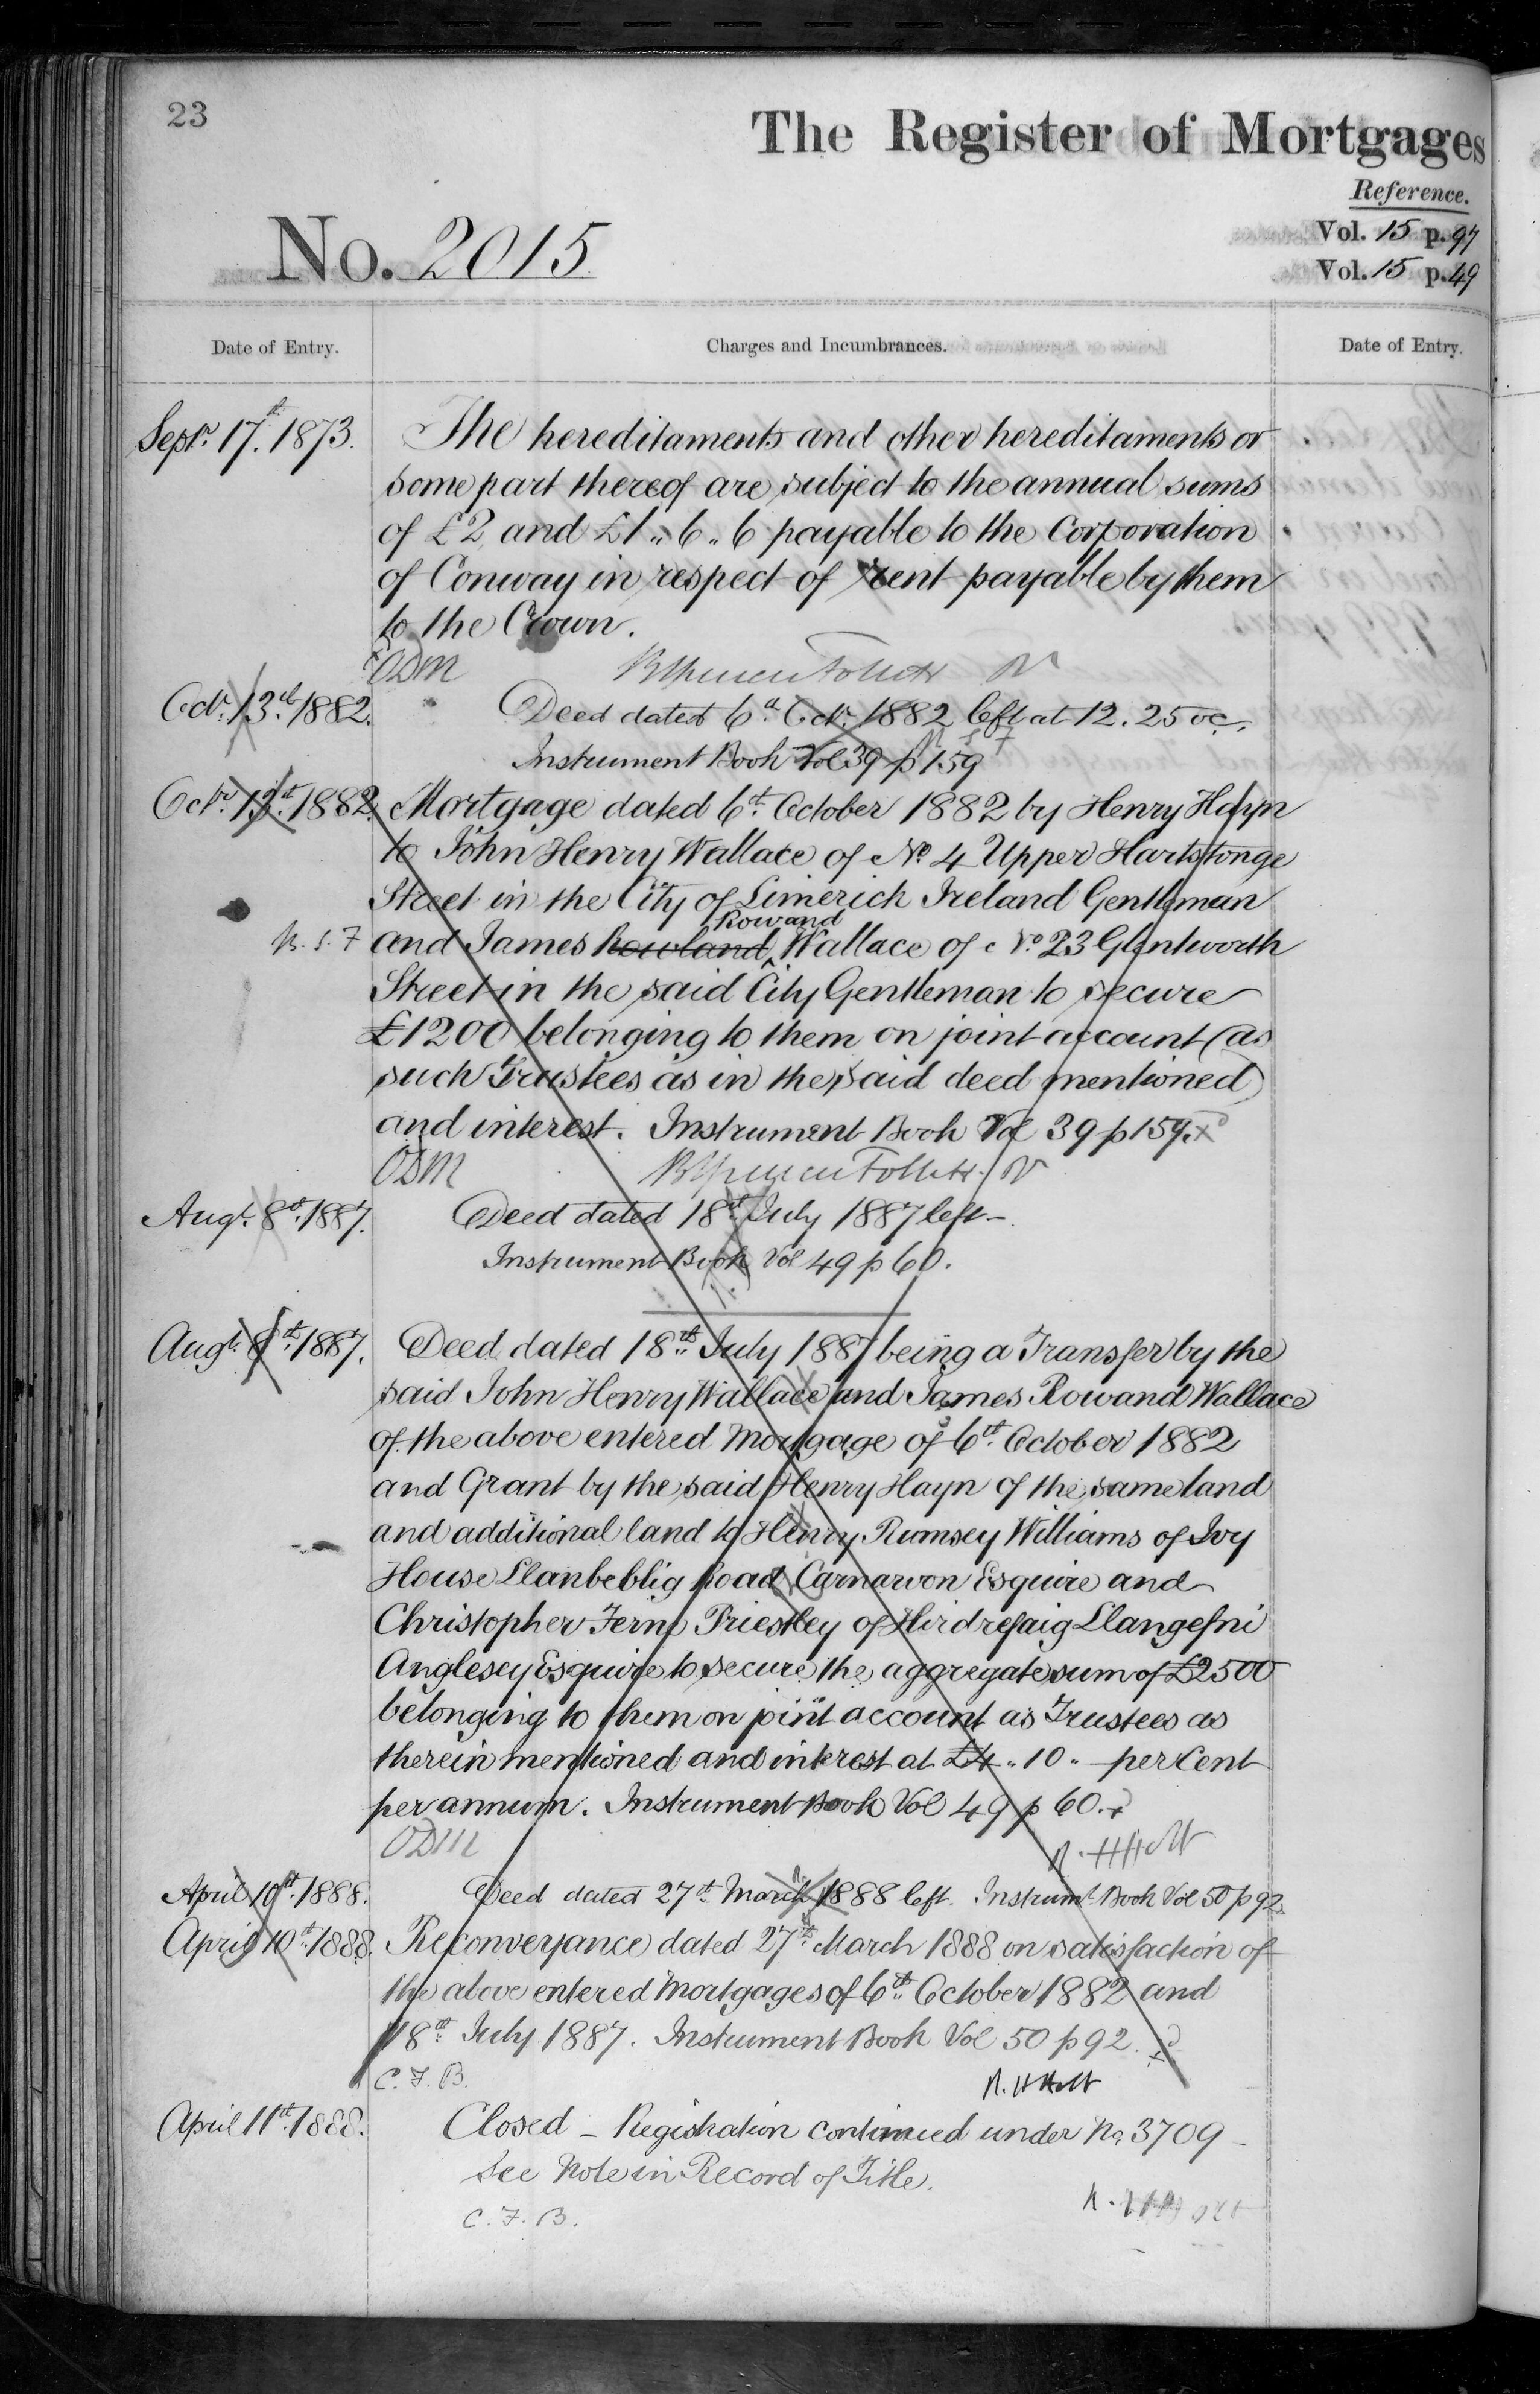 23
The Register of Mortgages
Reference.
No. 2015
Vol. 15 p. 97
Vol. 15 p. 49
Date of Entry.
Charges and Incumbrances.
Date of Entry.
Septr. 17th. 1873.
The hereditaments and other hereditaments or
some part thereof are subject to the annual sums
of £2 and £1 " 6 " 6 payable to the Corporation
of Conway in respect of rent payable by them
to the Crown.
ODM
Octr. 13th. 1882.
Deed dated 6th Octr. 1882 left at 12.25
Instrument Book Vol 39 p 159
Octr. 13th. 1882.
Mortgage dated 6th. October 1882 by Henry Hayn
to John Henry Wallace of No. 4 Upper Hartstonge
Street in the City of Limerick Ireland Gentleman
Rowand
and James Rowland Wallace of No. 23 Glentworth
Street in the said City Gentleman to secure
£1200 belonging to them on joint account (as
such Trustees as in the said deed mentioned)
and interest. Instrument Book Vol 39 p 159.
ODM
Augt. 8th. 1887.
Deed dated 18th July 1887 left
Instrument Book Vol 49 p 60.
Augt. 8th. 1887.
Deed dated 18th July 1887 being a Transfer by the
said John Henry Wallace and James Rowand Wallace
of the above entered Mortgage of 6th. October 1882
and Grant by the said Henry Hayn of the same land
and additional land to Henry Rumsey Williams of Ivy
House Llanbeblig Road Carnarvon Esquire and
Christopher Ferne Priestley of Hirdrefaig Llangefni
Anglesey Esquire to secure the aggregate sum of £2500
belonging to them on joint account as Trustees as
therein mentioned and interest at £4 " 10 " per Cent
per annum. Instrument Book Vol 49 p 60.
ODM
April 10th. 1888.
Deed dated 27th March 1888 left. Instrumt. Book Vol 50 p 92.
April 10th. 1888.
Reconveyance dated 27th March 1888 on satisfaction of
the above entered Mortgages of 6th October 1882 and
18th July 1887. Instrument Book Vol 50 p 92.
C. F. B.
April 11th. 1888.
Closed – Registration continued under No. 3709 –
See Note in Record of Title.
C. F. B.